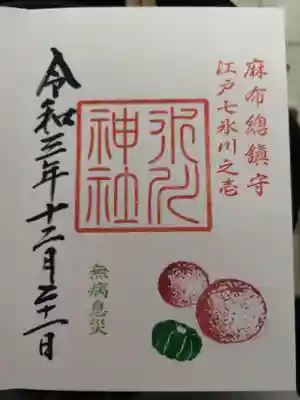 麻布總鎮守
江戸七氷川之壱
氷川
神社
無病息災
令和三年十二月二十二日